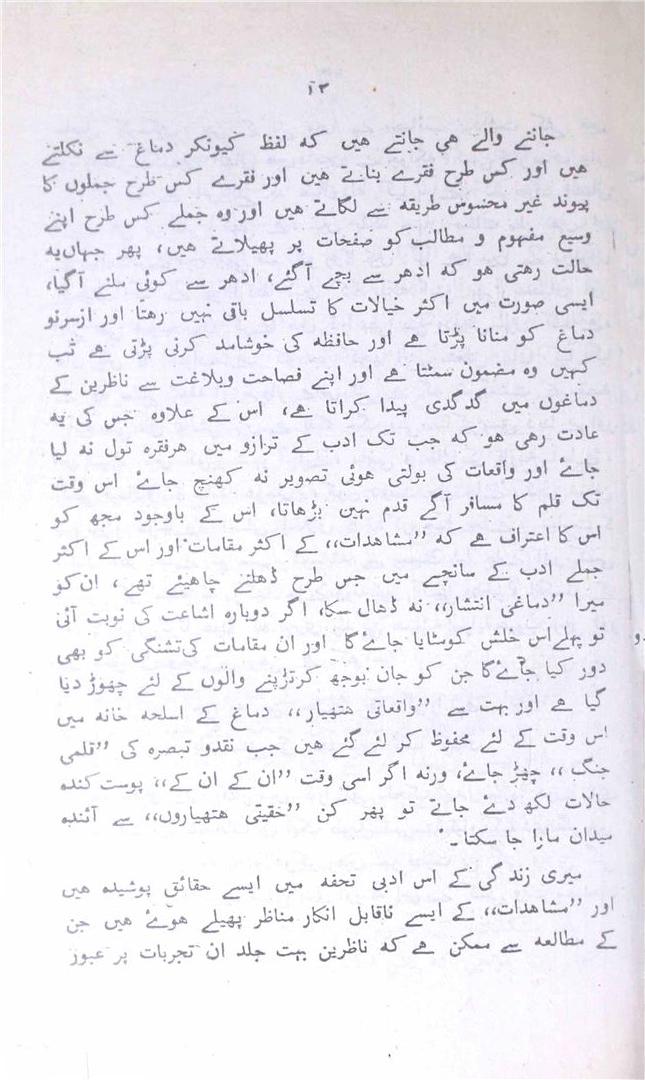 ۱۳
جاننے والے ھی جانتے ھیں که لفظ کیونکر دماغ سے نکلتے
ھیں اور کس طرح فقرے بناتے ھین اور فقرے کس طرح جملوں کا
پیوند غیر محسوس طریقه سے لگاتے ھیں اور وہ جملے کس طرح اپنے
وسیع مفہوم و مطالب کو صفحات پر پھیلاتے ھیں، پھر جہاں یه
حالت رھتی ھو که ادھر سے بچے آگئے، ادھر سے کوئی ملنے آگیا،
ایسی صورت میں اکثر خیالات کا تسلسل باقی نہیں رھتا اور ازسرنو
دماغ کو منانا پڑتا ھے اور حافظه کی خوشامد کرنی پڑتی ھے تب
کہیں وہ مضمون سمٹتا ھے اور اپنے فصاحت وبلاغت سے ناظرین کے
دماغوں میں گدگدی پیدا کراتا ھے، اس کے علاوہ جس کی یه
عادت رھی ھو که جب تک ادب کے ترازو میں ھرفقرہ تول نه لیا
جاۓ اور واقعات کی بولتی ھوئی تصویر نه کھنچ جاۓ اس وقت
تک قلم کا مسافر آگے قدم نہین بڑھاتا، اس کے باوجود مجھ کو
اس کا اعتراف ھے که ”مشاھدات،، کے اکثر مقامات اور اس کے اکثر
جملے ادب کے سانچے میں جس طرح ڈھلنے چاھیئے تھے، ان کو
میرا ”دماغی انتشار،، نه ڈھال سکا، اگر دوبارہ اشاعت کی نوبت آئی
تو پہلے اس خلش کومٹایا جاۓ گا اور ان مقامات کی تشنگی کو بھی
دور کیا جاۓ گا جن کو جان بوجھ کرتڑپنے والوں کے لئے چھوڑ دیا
گیا ھے اور بہت سے ”واقعاتی ھتھیار،، دماغ کے اسلحه خانه میں
اس وقت کے لئے محفوظ کر لئے گئے ھیں جب نقدو تبصرہ کی ”قلمی
جنگ،، چھڑ جاۓ، ورنه اگر اسی وقت ”ان کے ان کے،، پوست کندہ
حالات لکھ دۓ جاتے تو پھر کن ”حقیقی ھتھیاروں،، سے آئندہ
میدان مارا جا سکتا۔
میری زندگی کے اس ادبی تحفه میں ایسے حقائق پوشیدہ ھیں
اور ”مشاھدات،، کے ایسے ناقابل انکار مناظر پھیلے ھوۓ ھیں جن
کے مطالعه سے ممکن ھے که ناظرین بہت جلد ان تجربات پر عبور